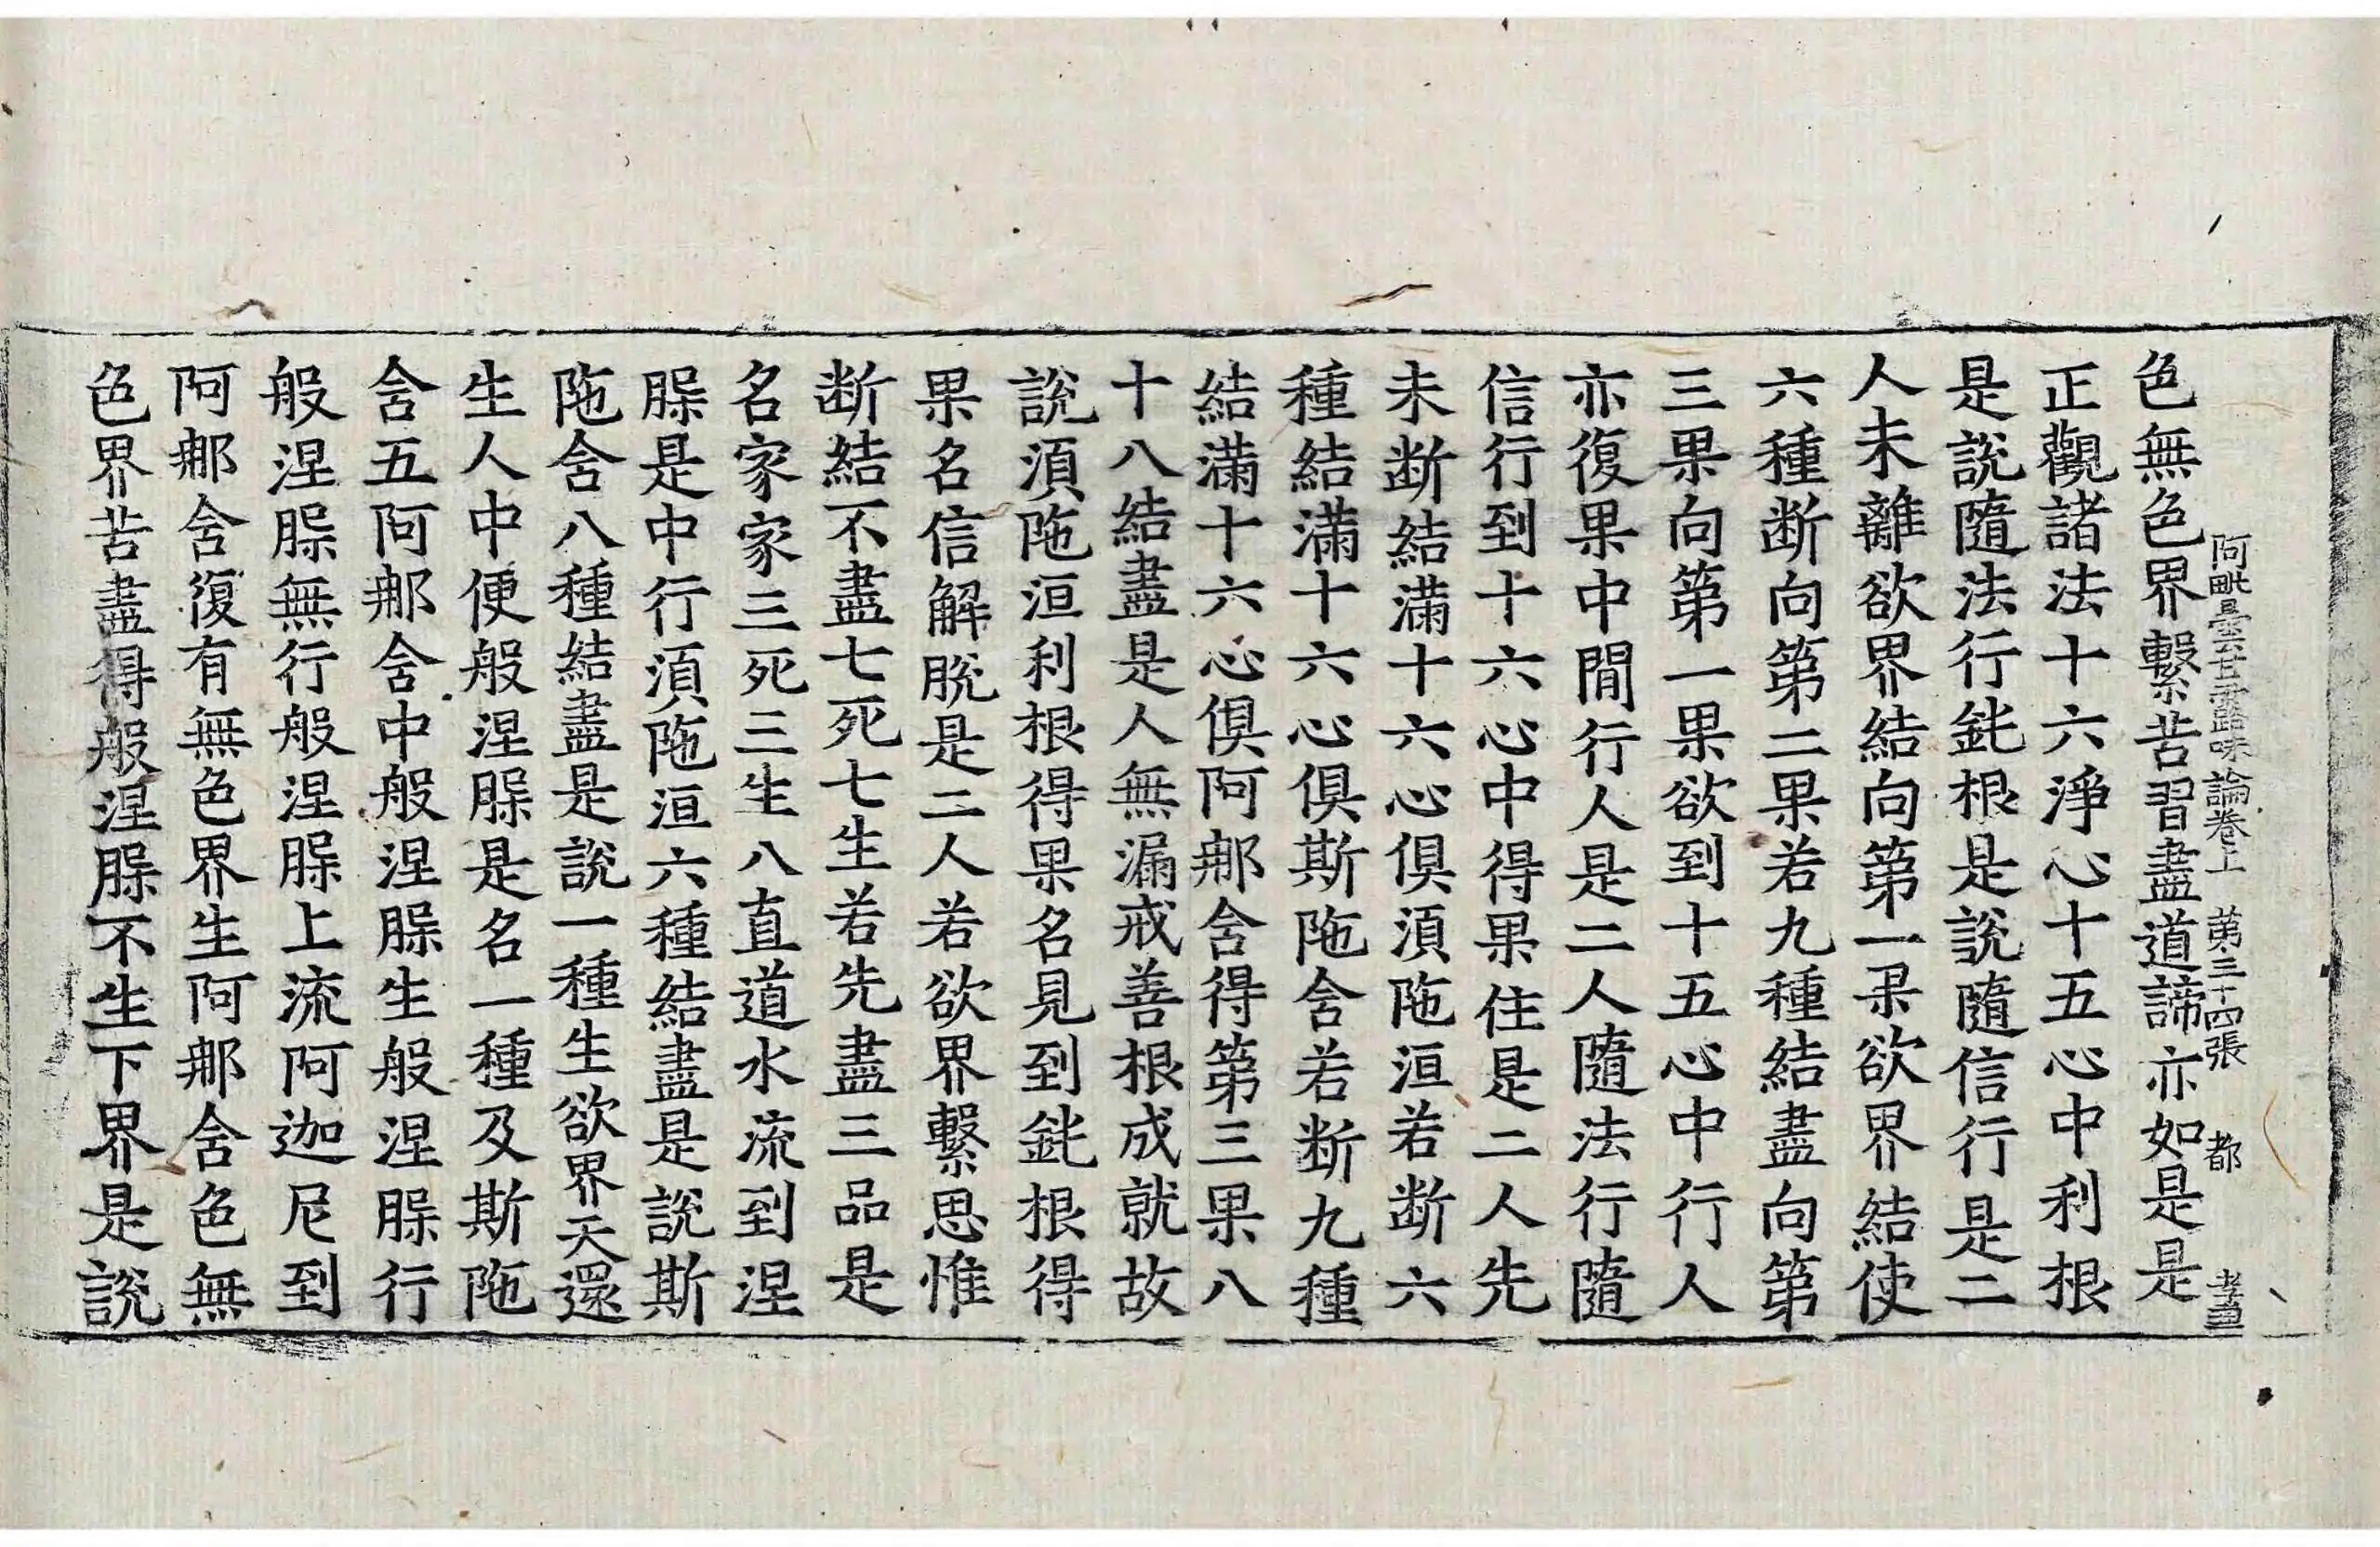 阿毗曇甘露味論卷上　第三十四張　都　孝
色無色界繫苦習盡道諦亦如是是
正觀諸法十六淨心十五心中利根
是說隨法行鈍根是說隨信行是二
人未離欲界結向第一果欲界結使
六種断向第二果若九種結盡向第
三果向第一果欲到十五心中行人
亦復果中閒行人是二人隨法行隨
信行到十六心中得果住是二人先
未断結滿十六心俱湏陁洹若断六
種結滿十六心俱斯陁舍若断九種
結滿十六心俱阿那舍得第三果八
十八結盡是人無漏戒善根成就故
說湏陁洹利根得果名見到鈍根得
果名信解脫是二人若欲界繫思惟
断結不盡七死七生若先盡三品是
名家家三死三生八直道水流到涅
槃是中行湏陁洹六種結盡是說斯
陁舍八種結盡是說一種生欲界天還
生人中便般涅槃是名一種及斯陁
舍五阿那舍中般涅槃生般涅槃行
般涅槃無行般涅槃上流阿迦尼到
阿那舍復有無色界生阿那舍色無
色界苦盡得般涅槃不生下界是說